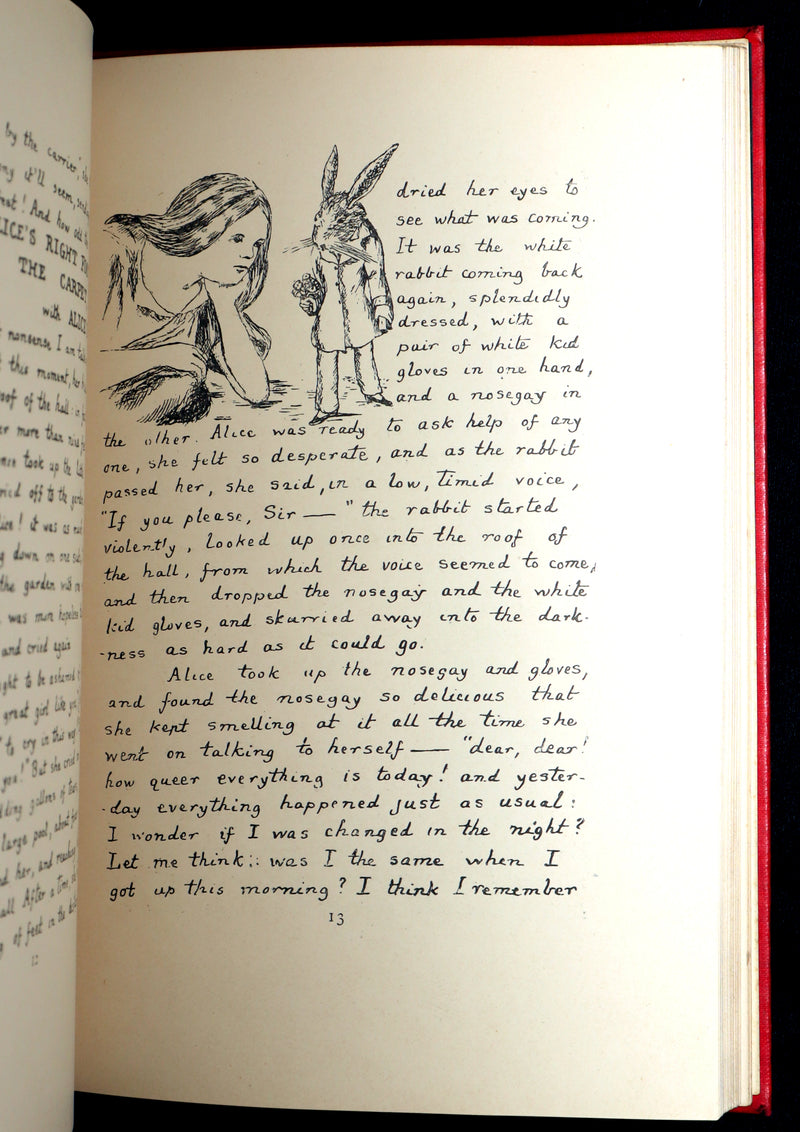 by the carrier,
seem,
And how odd
RIGHT
THE
with
nonsense, I am
this moment,
of the hall
more than
took up the
off to the
it was as
down on one
the garden
was more
and cried again
to be ashamed
great girl like
cry in this way
But she cried
gallons of
large pool,
her, and
After a
of feet in the
12
dried her eyes to
see what was coming.
It was the white
rabbit coming back
again, splendidly
dressed, with a
pair of white kid
gloves in one hand,
and a nosegay in
the other. Alice was ready to ask help of any
one, she felt so desperate, and as the rabbit
passed her, she said, in a low, timid voice,
"If you please, Sir —" the rabbit started
violently, looked up once into the roof of
the hall, from which the voice seemed to come,
and then dropped the nosegay and the white
kid gloves, and skurried away into the dark-
-ness as hard as it could go.
Alice took up the nosegay and gloves,
and found the nosegay so delicious that
she kept smelling at it all the time she
went on talking to herself — "dear, dear!
how queer everything is today! and yester-
-day everything happened just as usual:
I wonder if I was changed in the night?
Let me think: was I the same when I
got up this morning? I think I remember
13